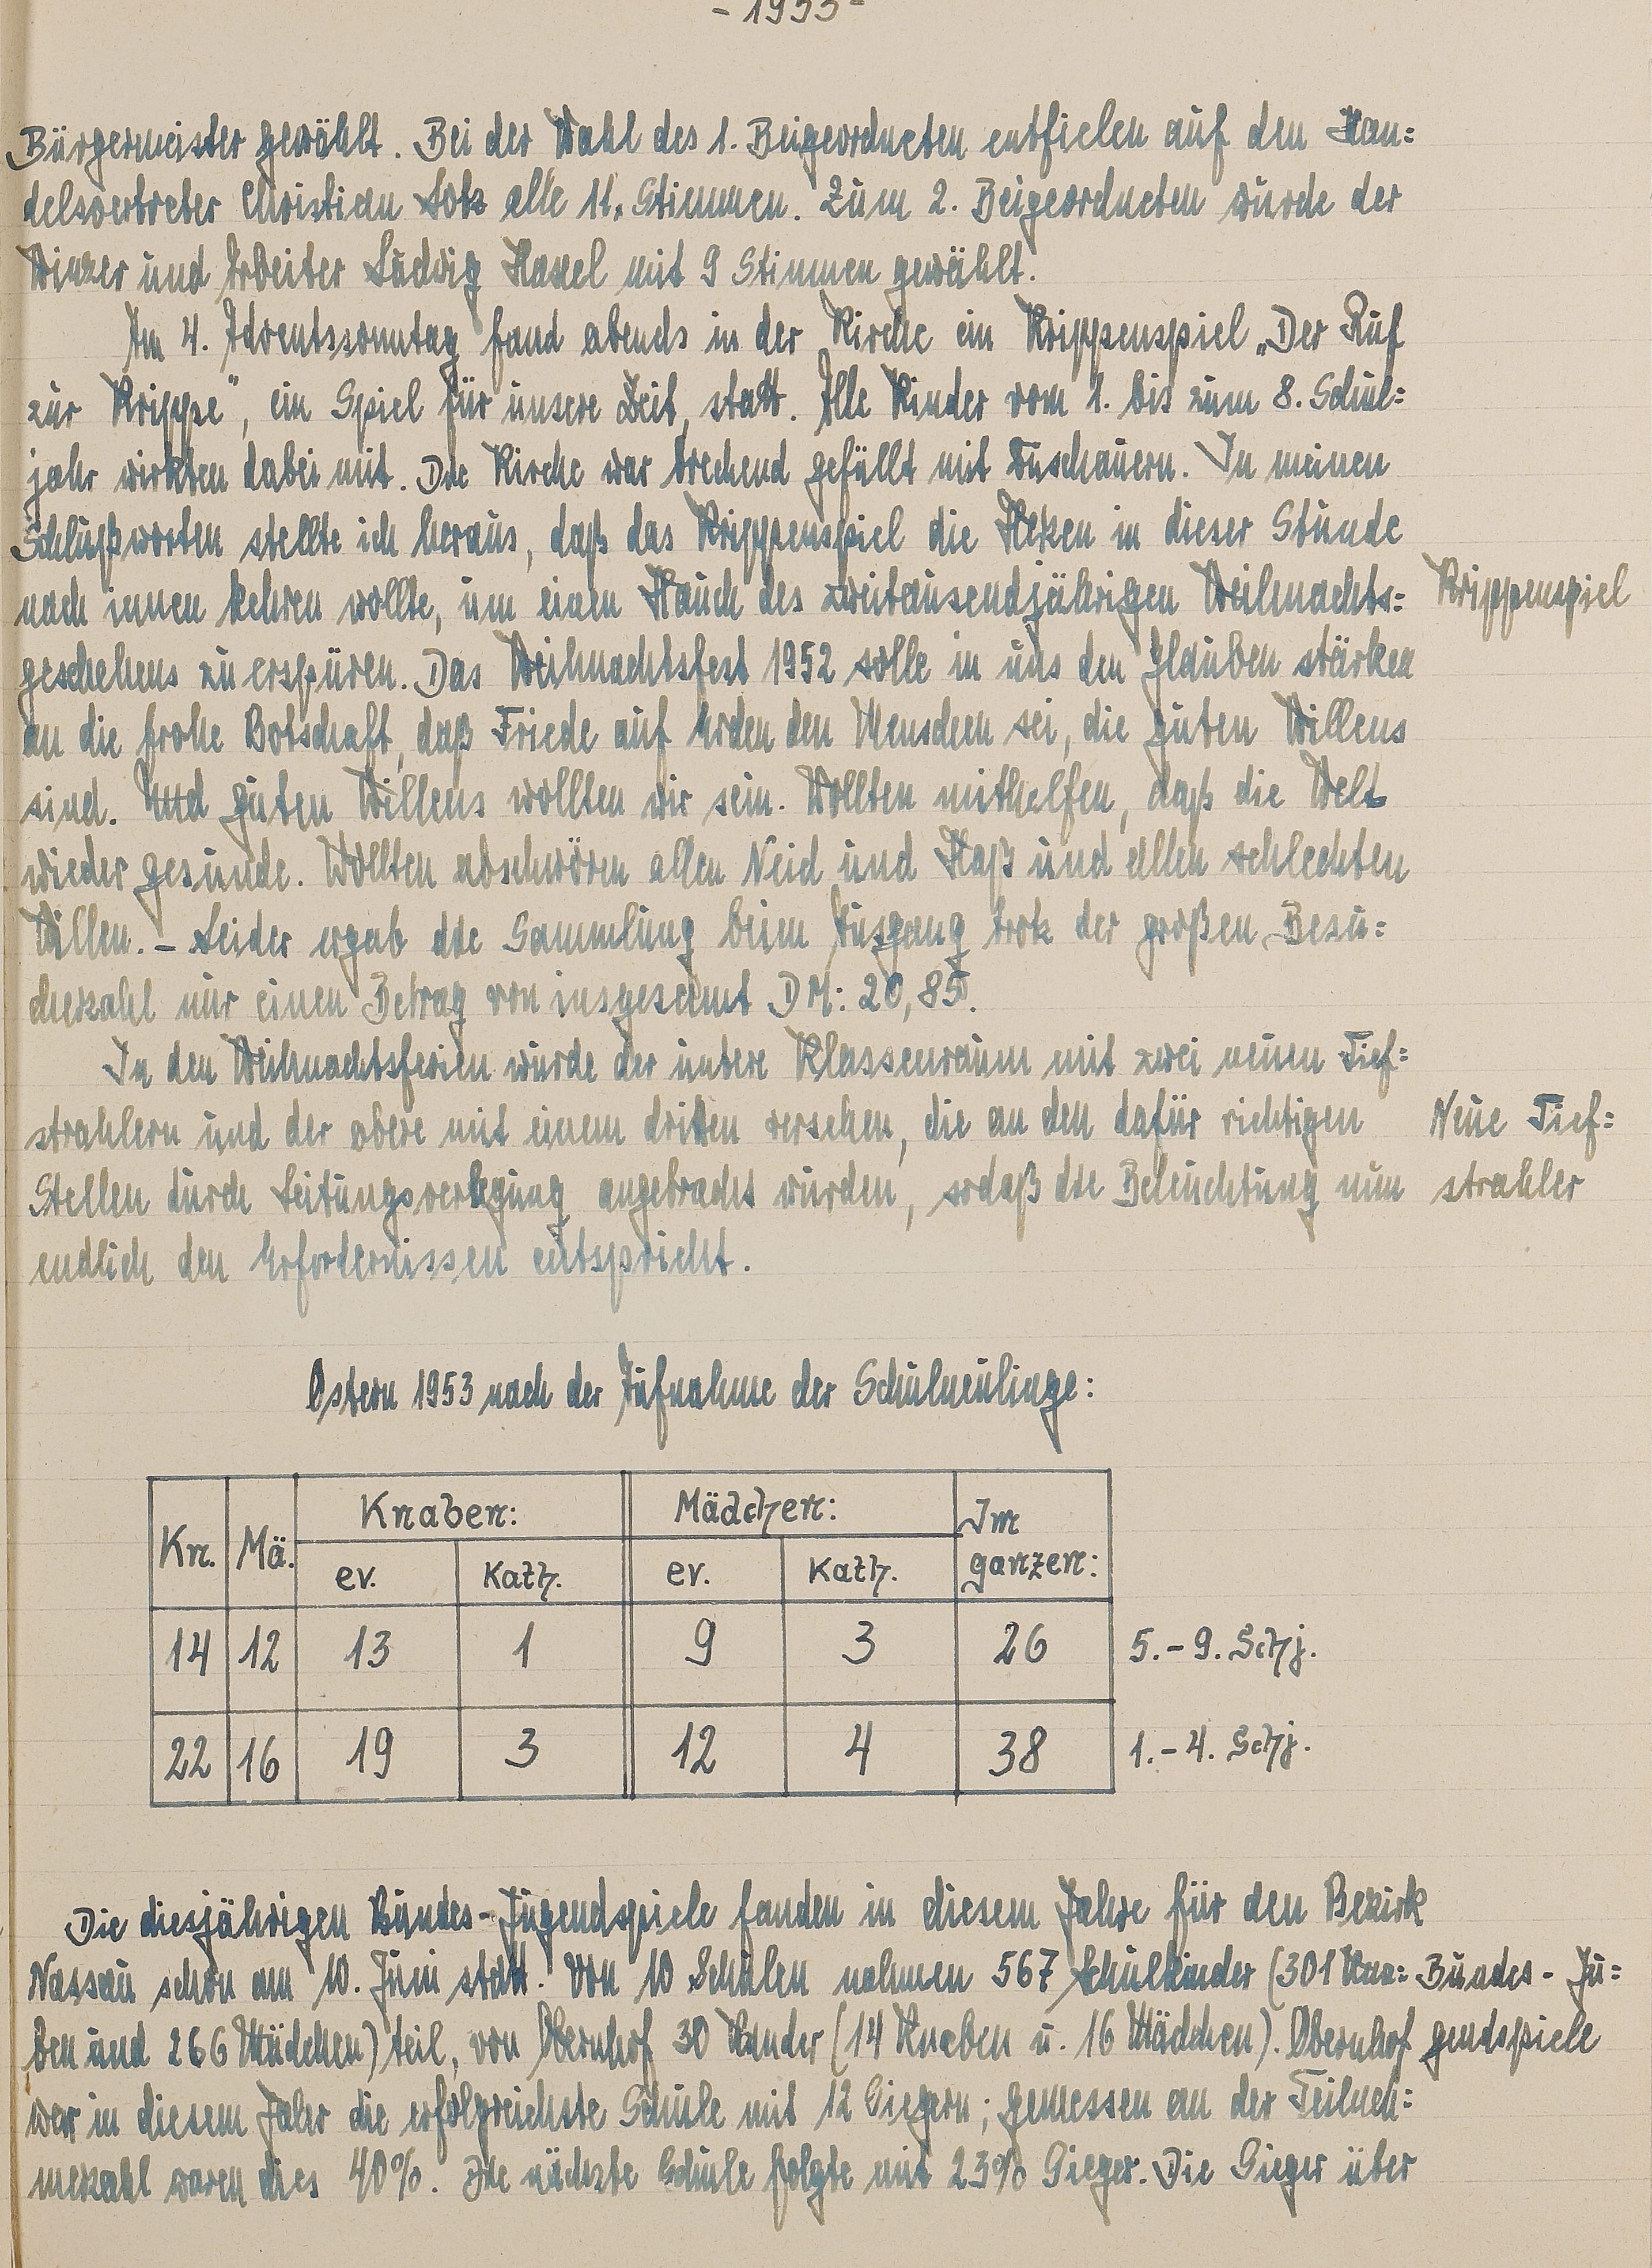 - 1953 -
Bürgermeister gewählt. Bei der Wahl des 1. Beigeordneten entfielen auf den Han=
delsvertreter Christian Lotz alle 11. Stimmen. Zum 2. Beigeordneten wurde der
Winzer und Arbeiter Ludwig Hasel mit 9 Stimmen gewählt.
Am 4. Adventssonntag fand abends in der Kirche ein Krippenspiel „Der Ruf
zur Krippe", ein Spiel für unsere Zeit, statt. Alle Kinder vom 1. bis zum 8. Schul=
jahr wirkten dabei mit. Die Kirche war brechend gefüllt mit Zuschauern. In meinen
Schlußworten stellte ich heraus, daß das Krippenspiel die Herzen in dieser Stunde
nach innen kehren wollte, um einen Hauch des zweitausendjährigen Weihnachts= Krippenspiel
geschehens zu erspüren. Das Weihnachtsfest 1952 solle in uns den Glauben stärken
an die frohe Botschaft, daß Friede auf Erden den Menschen sei, die guten Willens
sind. Und guten Willens wollten wir sein. Wollten mithelfen, daß die Welt
wieder gesunde. Wollten abschwören allen Neid und Haß und allen schlechten
Willen. - Leider ergab die Sammlung beim Ausgang trotz der großen Besu=
cherzahl nur einen Betrag von insgesamt DM: 20,85.
In den Weihnachtsferien wurde der untere Klassenraum mit zwei neuen Tief=
strahlern und der obere mit einem dritten versehen, die an den dafür richtigen Neue Tief=
Stellen durch Leitungsverlegung angebracht wurden, sodaß die Beleuchtung nun strahler
endlich den Erfordernissen entspricht.
Ostern 1953 nach der Aufnahme der Schulneulinge:
Kn. Mä. Knaben: Mädchen: Im ganzen:
ev. kath. ev. kath.
14 12 13 1 9 3 26 5.-9. Schj.
22 16 19 3 12 4 38 1.-4. Schj.
Die diesjährigen Bundes-Jugendspiele fanden in diesem Jahre für den Bezirk
Nassau schon am 10. Juni statt. Von 10 Schulen nahmen 567 Schulkinder (301 Kna= Bundes - Ju=
ben und 266 Mädchen) teil, von Obernhof 30 Kinder (14 Knaben u. 16 Mädchen). Obernhof gendspiele
war in diesem Jahr die erfolgreichste Schule mit 12 Siegern; gemessen an der Teilneh=
merzahl waren dies 40%. Die nächste Schule folgte mit 23% Sieger. Die Sieger über